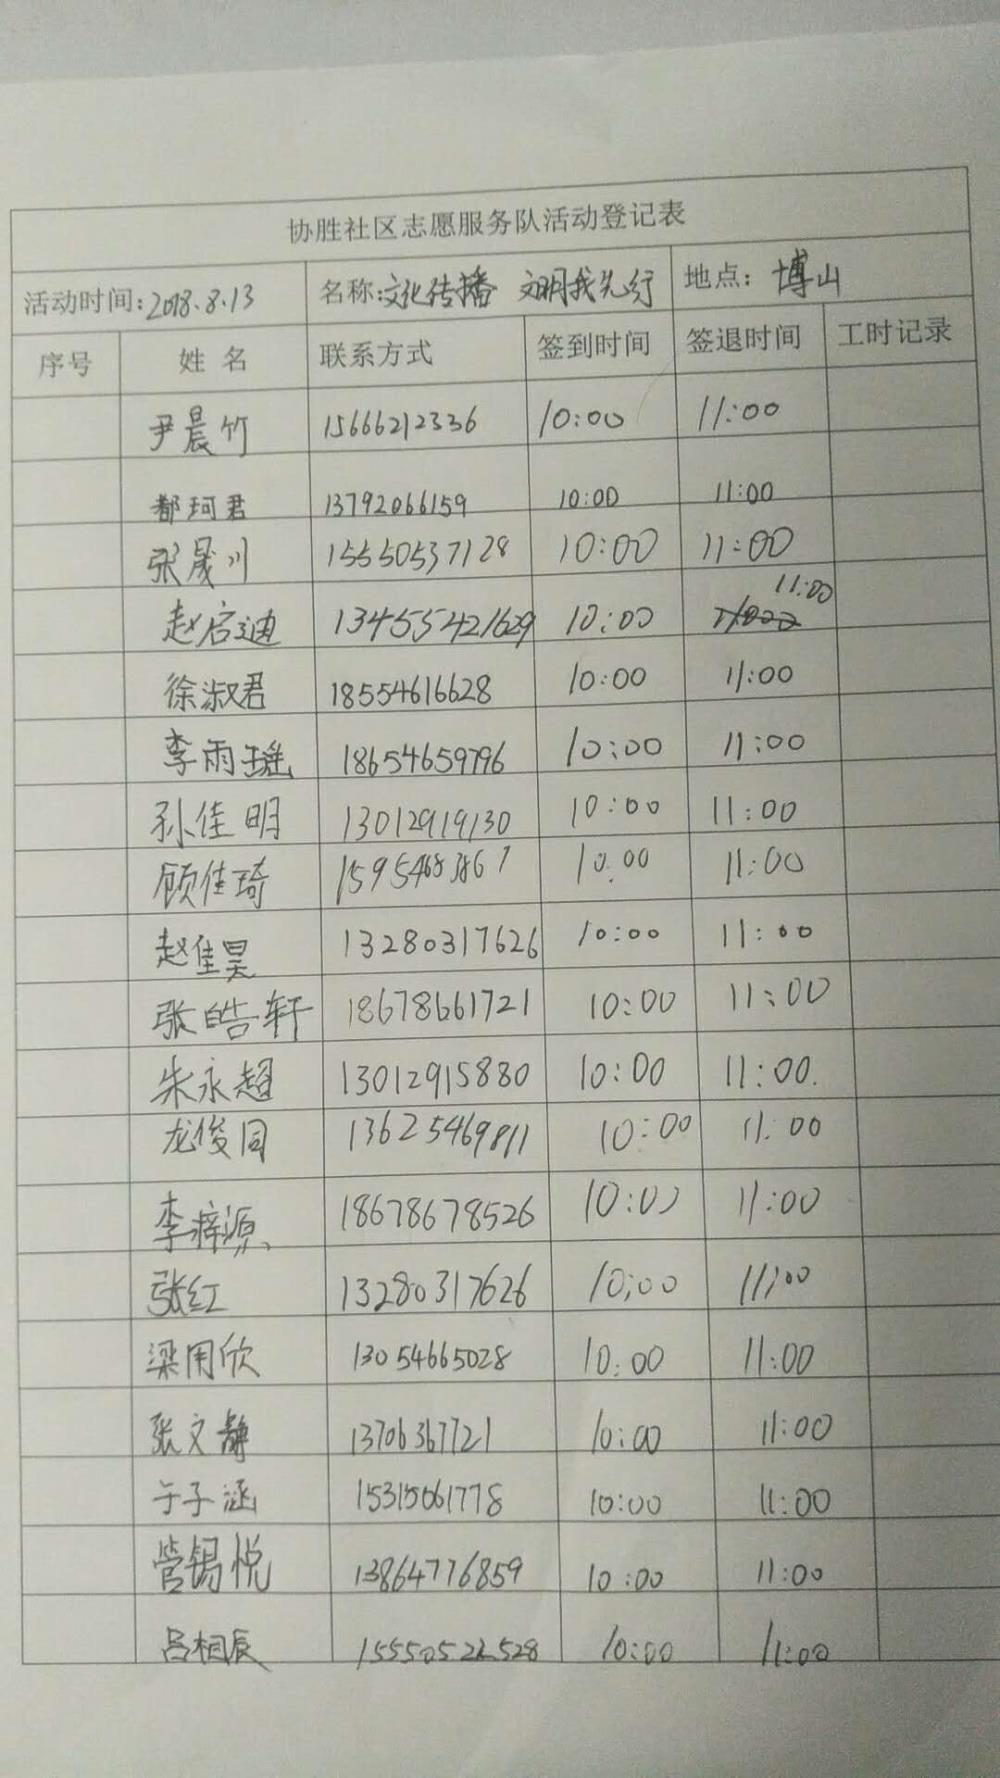 协胜社区志愿服务队活动登记表
活动时间:2018.8.13 名称:文化传播 文明我先行 地点: 博山
序号 姓名 联系方式 签到时间 签退时间 工时记录
尹晨竹 15666212336 10:00 11:00
郝珂君 13792066159 10:00 11:00
张晟川 15550537128 10:00 11:00
赵启迪 134555421629 10:00 11:00
徐淑君 18554616628 10:00 11:00
李雨瑶 18654659796 10:00 11:00
孙佳明 13012919130 10:00 11:00
顾佳琦 15954683867 10:00 11:00
赵佳昊 13280317626 10:00 11:00
张皓轩 18678661721 10:00 11:00
朱永超 13012915880 10:00 11:00
龙俊同 13625469811 10:00 11:00
李梓源 18678678526 10:00 11:00
张红 13280317626 10:00 11:00
梁用欣 13054665028 10:00 11:00
张文静 13706367721 10:00 11:00
于子涵 15315061778 10:00 11:00
管锡悦 13864776859 10:00 11:00
吕相辰 10:00 11:00